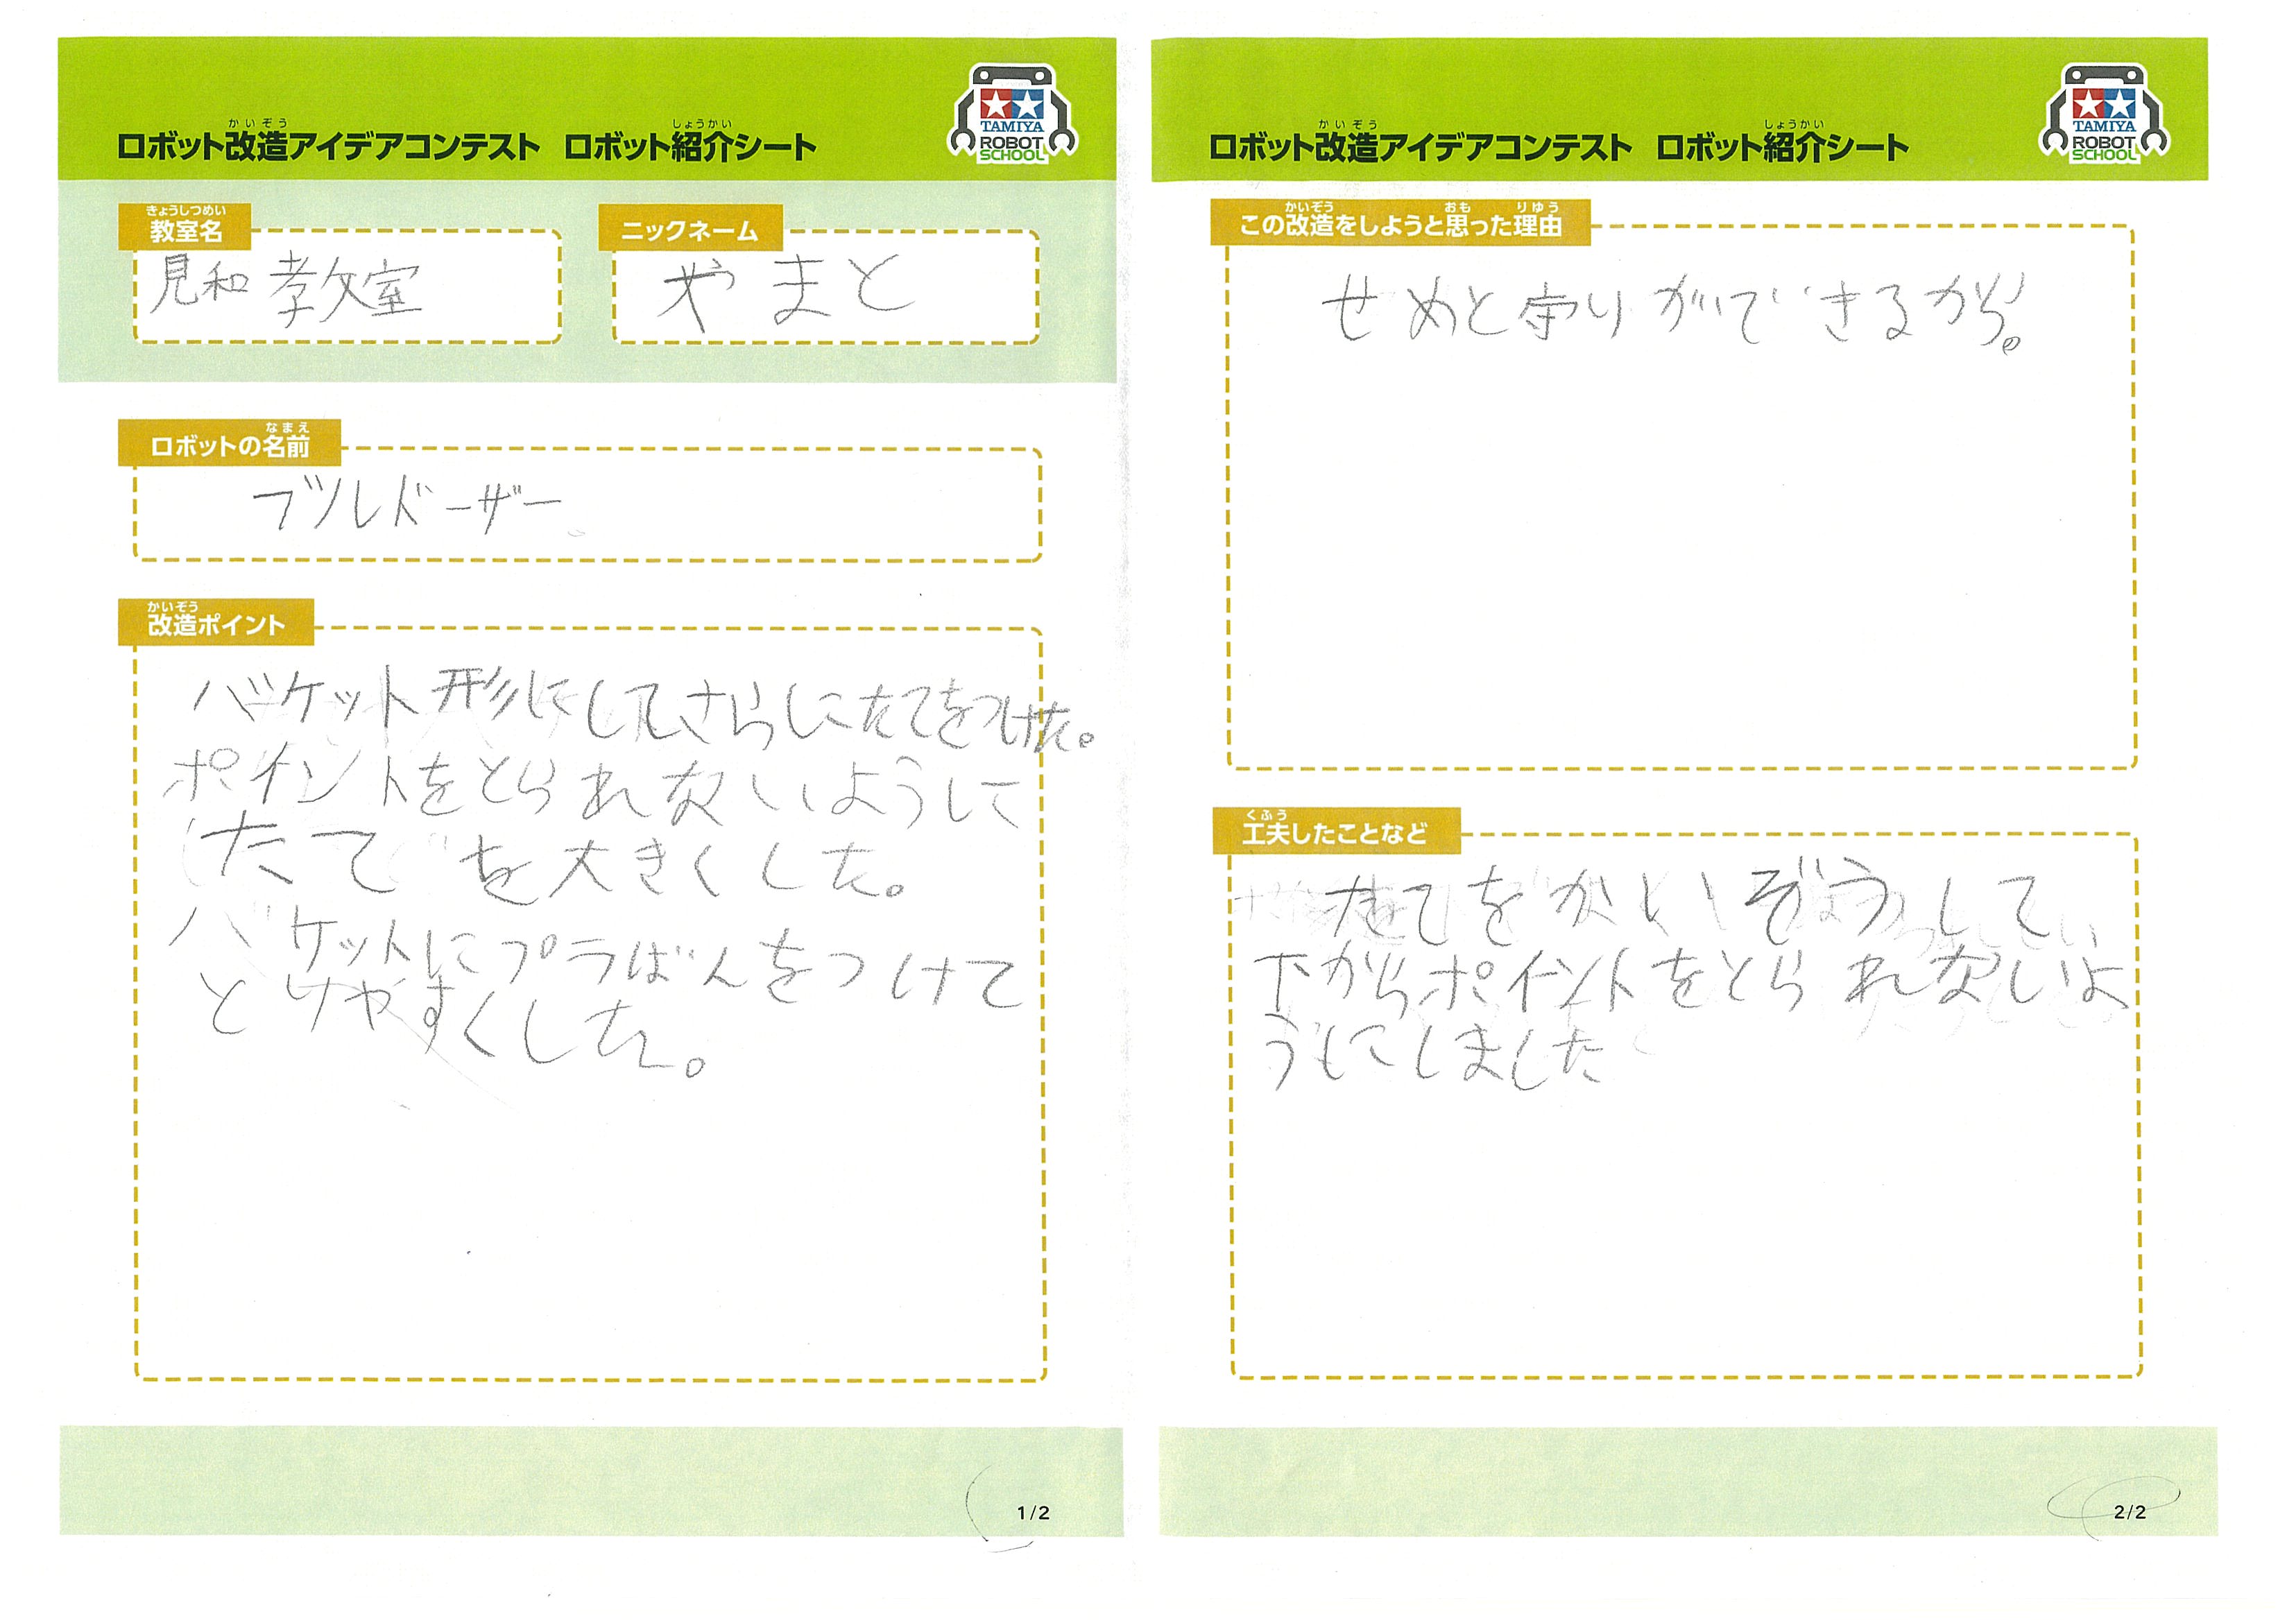 ロボット改造アイデアコンテスト ロボット紹介シート
かいぞう
しょうかい
TAMIYA
ROBOT
SCHOOL
きょうしつめい
教室名
見和 教室
ニックネーム
やまと
なまえ
ロボットの名前
ブルドーザー
かいぞう
改造ポイント
バケット形にしてさらにたてをつけた。
ポイントをとられないようして
たてを大きくした。
バケットにプラばんをつけて
とりやすくした。
1/2
ロボット改造アイデアコンテスト ロボット紹介シート
かいぞう
しょうかい
TAMIYA
ROBOT
SCHOOL
かいぞう おも りゆう
この改造をしようと思った理由
せめと守りができるから。
くふう
工夫したことなど
たてをかいぞうして
下からポイントをとられないよ
うにしました
2/2